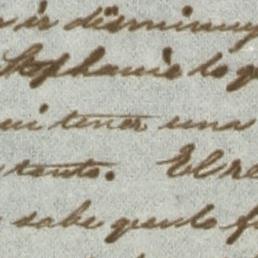 ir disminuy
Stephanie lo q
ui tener una
tanto. El re
sabe que lo f